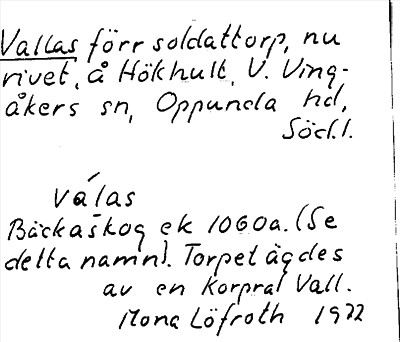 Vallas förr soldattorp, nu
rivet, å Hökhult, V. Ving-
åkers sn, Oppunda hd,
Söd.l.
válas
Bäckaskog ek 1060a. (Se
detta namn). Torpet ägdes
av en korpral Vall.
Mona Löfroth 1922